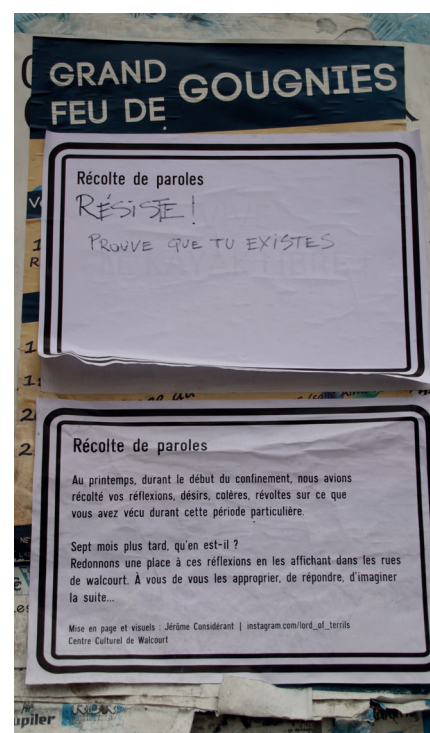 GRAND
FEU DE GOUGNIES
Récolte de paroles
RÉSISTE!
PROUVE QUE TU EXISTES
Récolte de paroles
Au printemps, durant le début du confinement, nous avions
récolté vos réflexions, désirs, colères, révoltes sur ce que
vous avez vécu durant cette période particulière.
Sept mois plus tard, qu'en est-il ?
Redonnons une place à ces réflexions en les affichant dans les rues
de walcourt. À vous de vous les approprier, de répondre, d'imaginer
la suite...
Mise en page et visuels : Jérôme Considérant | instagram.com/lord_of_terrils
Centre Culturel de Walcourt